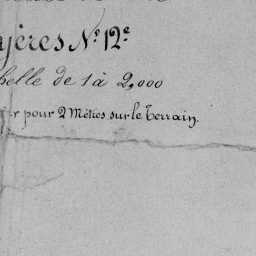 yères N.º 12.e
helle de 1 à 2,000
pour 2 Mètres sur le Terrain.